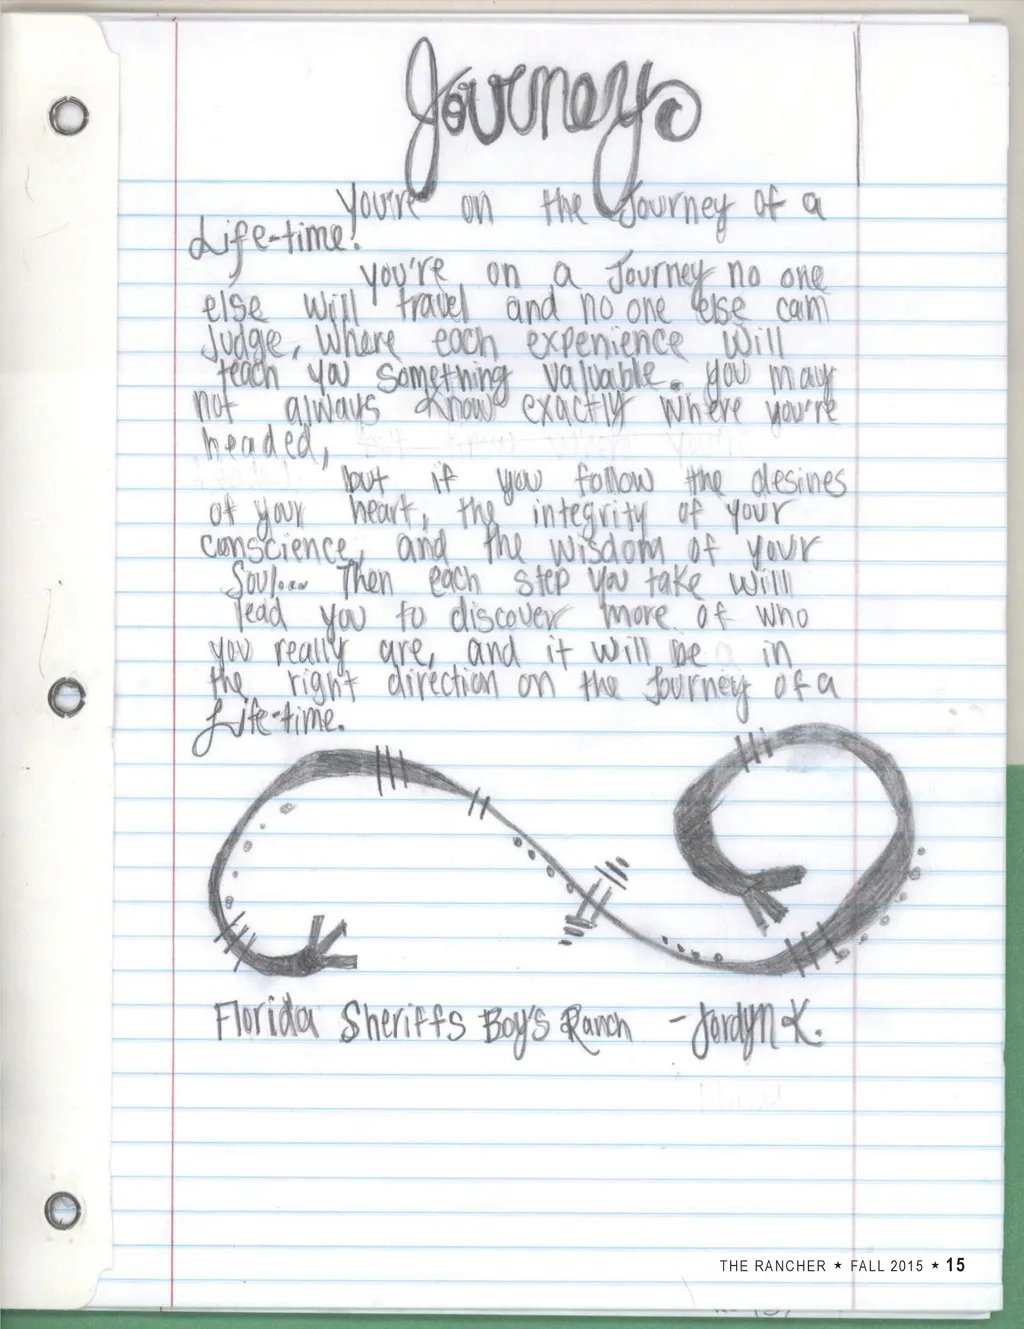 Journey
You're on the Journey of a
Life-time!
You're on a Journey no one
else will travel and no one else can
Judge, Where each experience Will
teach you something valuable. you may
not always know exactly where you're
headed,
but if you follow the desires
of your heart, the integrity of your
conscience, and the wisdom of your
Soul... Then each step you take will
lead you to discover more of who
you really are, and it will be in
the right direction on the Journey of a
Life-time.
Florida Sheriffs Boy's Ranch - Jordyn K.
THE RANCHER ★ FALL 2015 ★ 15